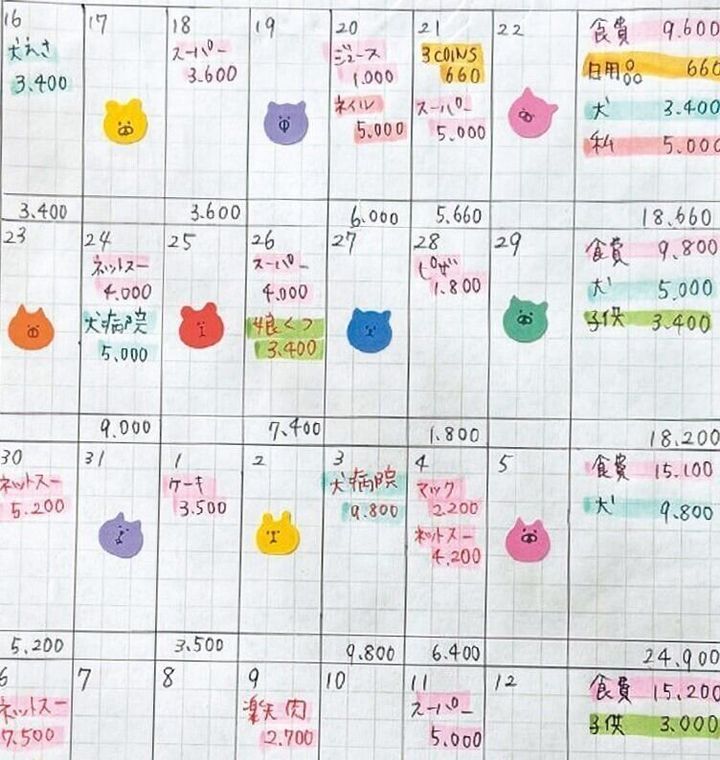 16 17 18 19 20 21 22 食費 9.600
犬えさ スーパー ジュース 3COINS 日用品 660
3.400 3.600 1.000 660 犬 3.400
ネイル スーパー 私 5.000
5.000 5.000
3.400 3.600 6.000 5.660 18.660
23 24 25 26 27 28 29 食費 9.800
ネットスー スーパー ピザ 犬 5.000
4.000 4.000 1.800 子供 3.400
犬病院 娘くつ
5.000 3.400
9.000 7.400 1.800 18.200
30 31 1 2 3 4 5 食費 15.100
ネットスー ケーキ 犬病院 マック 犬 9.800
5.200 3.500 9.800 2.200
ネットスー
4.200
5.200 3.500 9.800 6.400 24.900
6 7 8 9 10 11 12 食費 15.200
ネットスー 楽天肉 スーパー 子供 3.000
7.500 2.700 5.000